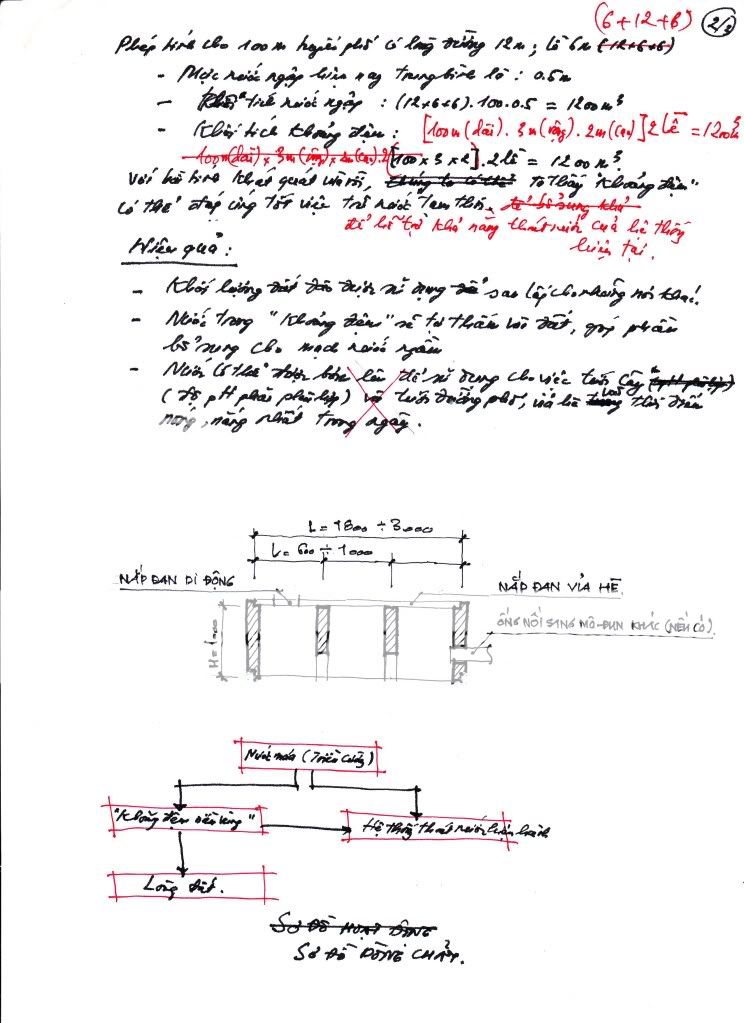 (6+12+6) 2/2
Phép tính cho 100m tuyến phố có lòng đường 12m; lề 6m (12+6+6)
- Mực nước ngập hiện nay trung bình là: 0.5m
- Khối tích nước ngập : (12+6+6).100.0.5 = 1200m³
- Khối tích khoảng đệm : [100m(dài). 3m(rộng). 2m(cao)]2 lề = 1200m³
100m(dài) x 3m(rộng) x 2m(cao).2 [100 x 3 x 2].2 lề = 1200m³
Với mô hình khái quát vừa rồi, chúng ta có thể ta thấy "khoảng đệm"
có thể đáp ứng tốt việc trữ nước tạm thời, để bổ sung khả
để hỗ trợ khả năng thoát nước của hệ thống
hiện tại.
Hiệu quả :
- Khối lượng đất đào được sử dụng để san lấp cho những nơi khác.
- Nước trong "khoảng đệm" sẽ tự thấm vào đất, góp phần
bổ sung cho mạch nước ngầm
- Nước có thể được bơm lên để sử dụng cho việc tưới cây
(độ pH phải phù hợp) và tưới đường phố, vỉa hè vào thời điểm
nóng, nắng nhất trong ngày.
L = 1800 ÷ 3000
L = 600 ÷ 1000
NẮP ĐAN DI ĐỘNG
NẮP ĐAN VỈA HÈ
ỐNG NỐI SANG MÔ-ĐUN KHÁC (NẾU CÓ).
H = 1000
Nước mưa (Triều cường)
"Khoảng đệm
Hệ thống thoát nước hiện hành
Lòng đất.
SƠ ĐỒ HOẠT ĐỘNG
SƠ ĐỒ DÒNG CHẢY.